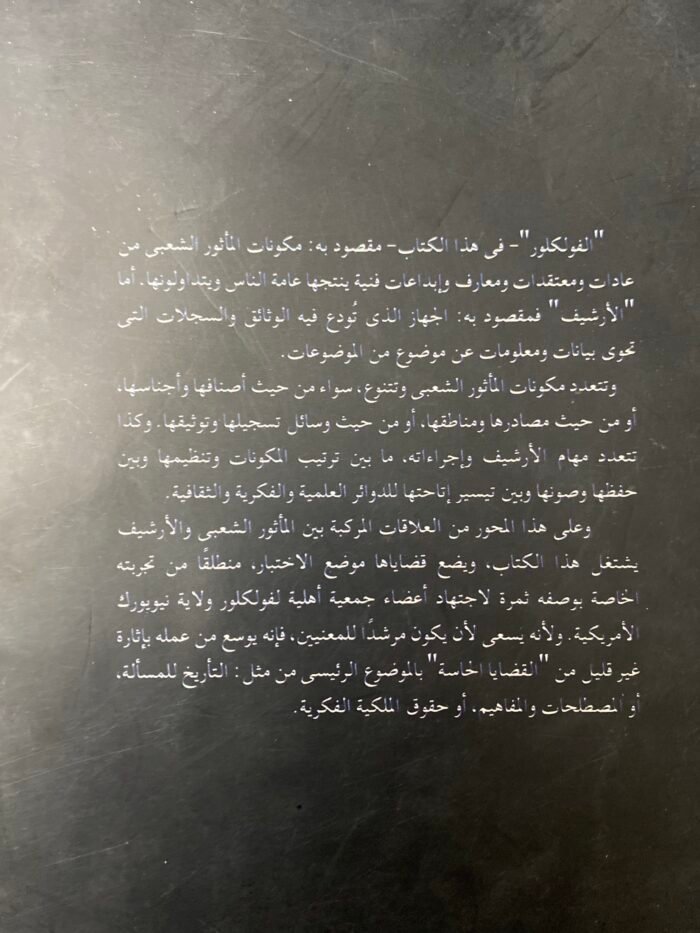 "الفولكلور"- فى هذا الكتاب- مقصود به: مكونات المأثور الشعبى من
عادات ومعتقدات ومعارف وإبداعات فنية ينتجها عامة الناس ويتداولونها. أما
"الأرشيف" فمقصود به: الجهاز الذى تُودع فيه الوثائق والسجلات التى
تحوى بيانات ومعلومات عن موضوع من الموضوعات.
وتتعدد مكونات المأثور الشعبى وتتنوع، سواء من حيث أصنافها وأجناسها،
أو من حيث مصادرها ومناطقها، أو من حيث وسائل تسجيلها وتوثيقها. وكذا
تتعدد مهام الأرشيف وإجراءاته، ما بين ترتيب المكونات وتنظيمها وبين
حفظها وصونها وبين تيسير إتاحتها للدوائر العلمية والفكرية والثقافية.
وعلى هذا المحور من العلاقات المركبة بين المأثور الشعبى والأرشيف
يشتغل هذا الكتاب، ويضع قضاياها موضع الاختبار، منطلقًا من تجربته
الخاصة بوصفه ثمرة لاجتهاد أعضاء جمعية أهلية لفولكلور ولاية نيويورك
الأمريكية. ولأنه يسعى لأن يكون مرشدًا للمعنيين، فإنه يوسع من عمله بإثارة
غير قليل من "القضايا الحاسة" بالموضوع الرئيسى من مثل: التأريخ للمسألة،
أو المصطلحات والمفاهيم، أو حقوق الملكية الفكرية.